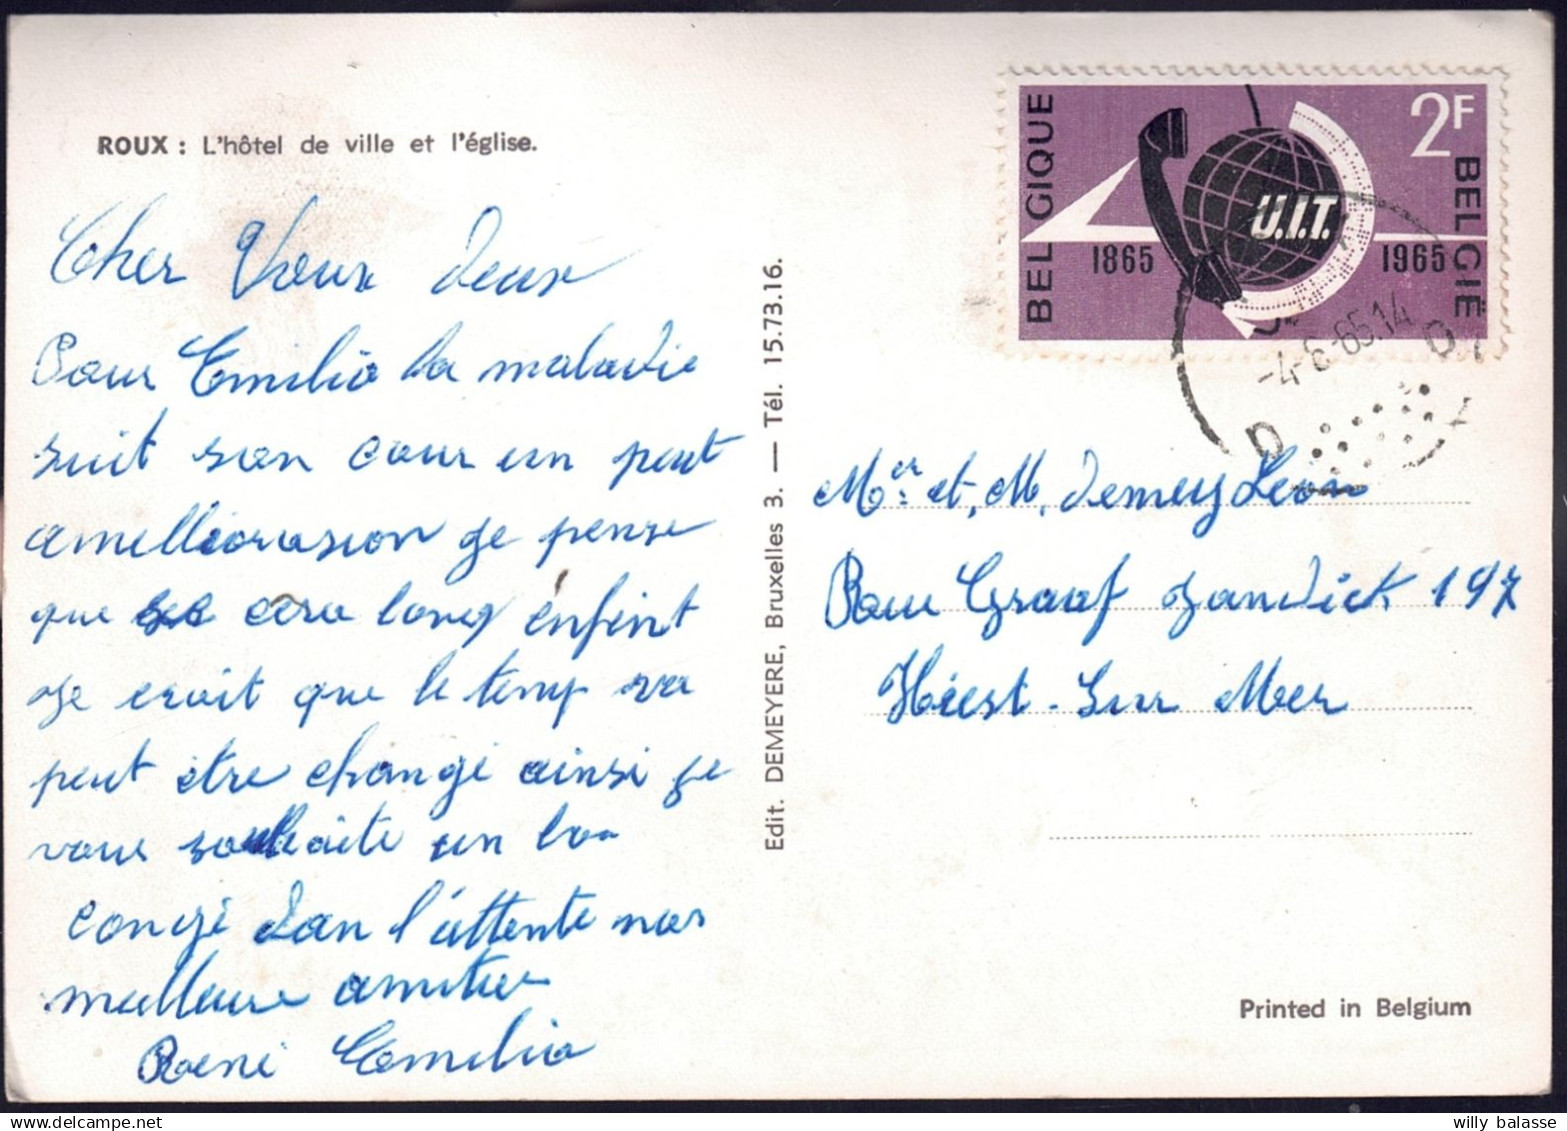 ROUX : L'hôtel de ville et l'église.
Cher Vous deux
Pour Emilia la maladie
suit son cour un peut
amelliorasion je pense
que cera long enfint
je croit que le temp va
peut être changé ainsi je
vous souhaite un bon
congé dan l'attente nos
meilleure amitier
René Emilia
Edit. DEMEYERE, Bruxelles 3. — Tél. 15.73.16.
BELGIQUE
2F
BELGIË
U.I.T.
1865
1965
-4-6-65.14
Mer. et. M. Demey Léon
Rue Graaf Jansdick 197
Heest-Sur Mer
Printed in Belgium
willy balasse